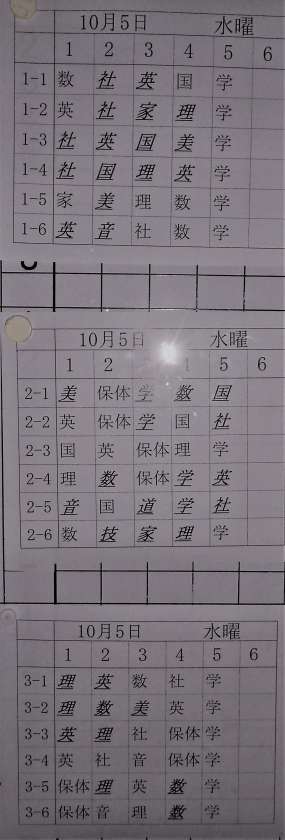 10月5日 水曜
1 2 3 4 5 6
1-1 数 社 英 国 学
1-2 英 社 家 理 学
1-3 社 英 国 美 学
1-4 社 国 理 英 学
1-5 家 美 理 数 学
1-6 英 音 社 数 学
10月5日 水曜
1 2 3 4 5 6
2-1 美 保体 学 数 国
2-2 英 保体 学 国 社
2-3 国 英 保体 理 学
2-4 理 数 保体 学 英
2-5 音 国 道 学 社
2-6 数 技 家 理 学
10月5日 水曜
1 2 3 4 5 6
3-1 理 英 数 社 学
3-2 理 数 美 英 学
3-3 英 理 社 保体 学
3-4 英 社 音 保体 学
3-5 保体 理 英 数 学
3-6 保体 音 理 数 学